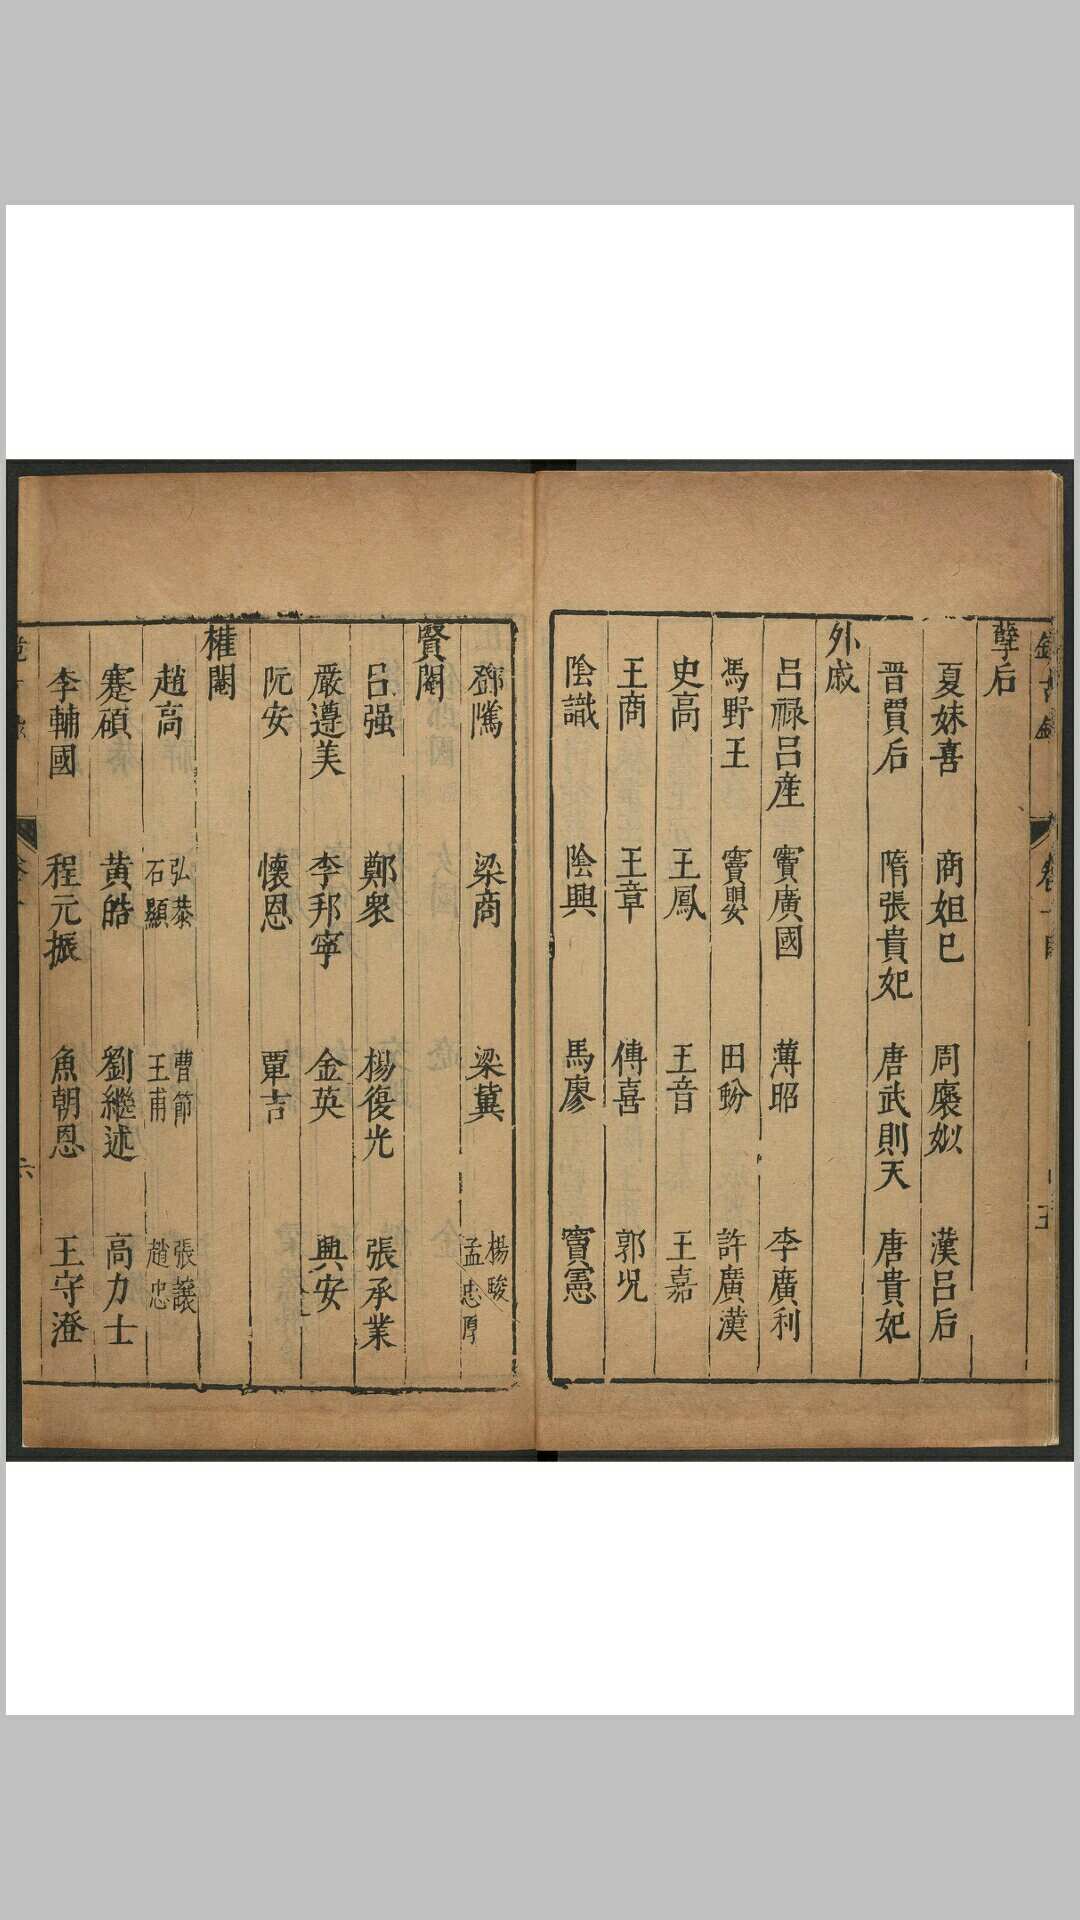 孽后
夏妹喜 商妲己 周褒姒 漢呂后
晋賈后 隋張貴妃 唐武則天 唐貴妃
外戚
呂祿呂産 竇廣國 薄昭 李廣利
馮野王 竇嬰 田蚡 許廣漢
史高 王鳳 王音 王嘉
王商 王章 傅喜 郭况
陰識 陰興 馬廖 竇憲
鄧騭 梁商 梁冀 楊駿 孟忠厚
賢閹
呂强 鄭衆 楊復光 張承業
嚴遵美 李邦寧 金英 興安
阮安 懷恩 覃吉
權閹
趙高 弘恭 石顯 曹節 王甫 張讓 趙忠
蹇碩 黃皓 劉繼述 高力士
李輔國 程元振 魚朝恩 王守澄
六